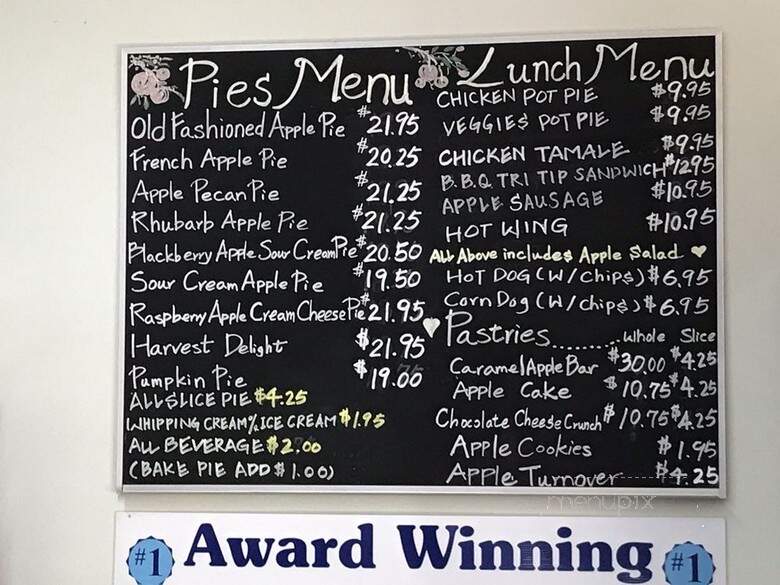 Pies Menu
Old Fashioned Apple Pie $21.95
French Apple Pie $20.25
Apple Pecan Pie $21.25
Rhubarb Apple Pie $21.25
Blackberry Apple Sour Cream Pie $20.50
Sour Cream Apple Pie $19.50
Raspberry Apple Cream Cheese Pie $21.95
Harvest Delight $21.95
Pumpkin Pie $19.00
ALL SLICE PIE $4.25
WHIPPING CREAM % ICE CREAM $1.95
ALL BEVERAGE $2.00
(BAKE PIE ADD $1.00)
Lunch Menu
CHICKEN POT PIE $9.95
VEGGIES POT PIE $9.95
CHICKEN TAMALE $9.95
B.B.Q TRI TIP SANDWICH $1295
APPLE SAUSAGE $10.95
HOT WING $10.95
All Above includes Apple Salad ♥
HOT DOG (W/Chips) $6.95
Corn Dog (W/Chips) $6.95
♥ Pastries........ Whole Slice
Caramel Apple Bar $30.00 $4.25
Apple Cake $10.75 $4.25
Chocolate Cheese Crunch $10.75 $4.25
Apple Cookies $1.95
Apple Turnover $4.25
menupix
#1 Award Winning #1